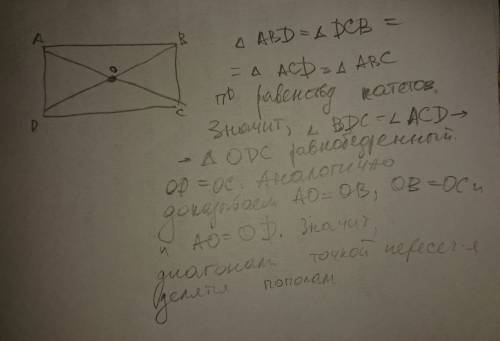 A B
O
D C
△ ABD = ∠ DCB =
= △ ACD = △ ABC
по равенству катетов.
Значит, ∠ BDC = ∠ ACD →
→ △ ODC равнобедренный.
OD = OC. Аналогично
доказываем AO = OB, OB = OC и
и AO = OD. Значит,
диагонали точкой пересеч-я
делятся пополам